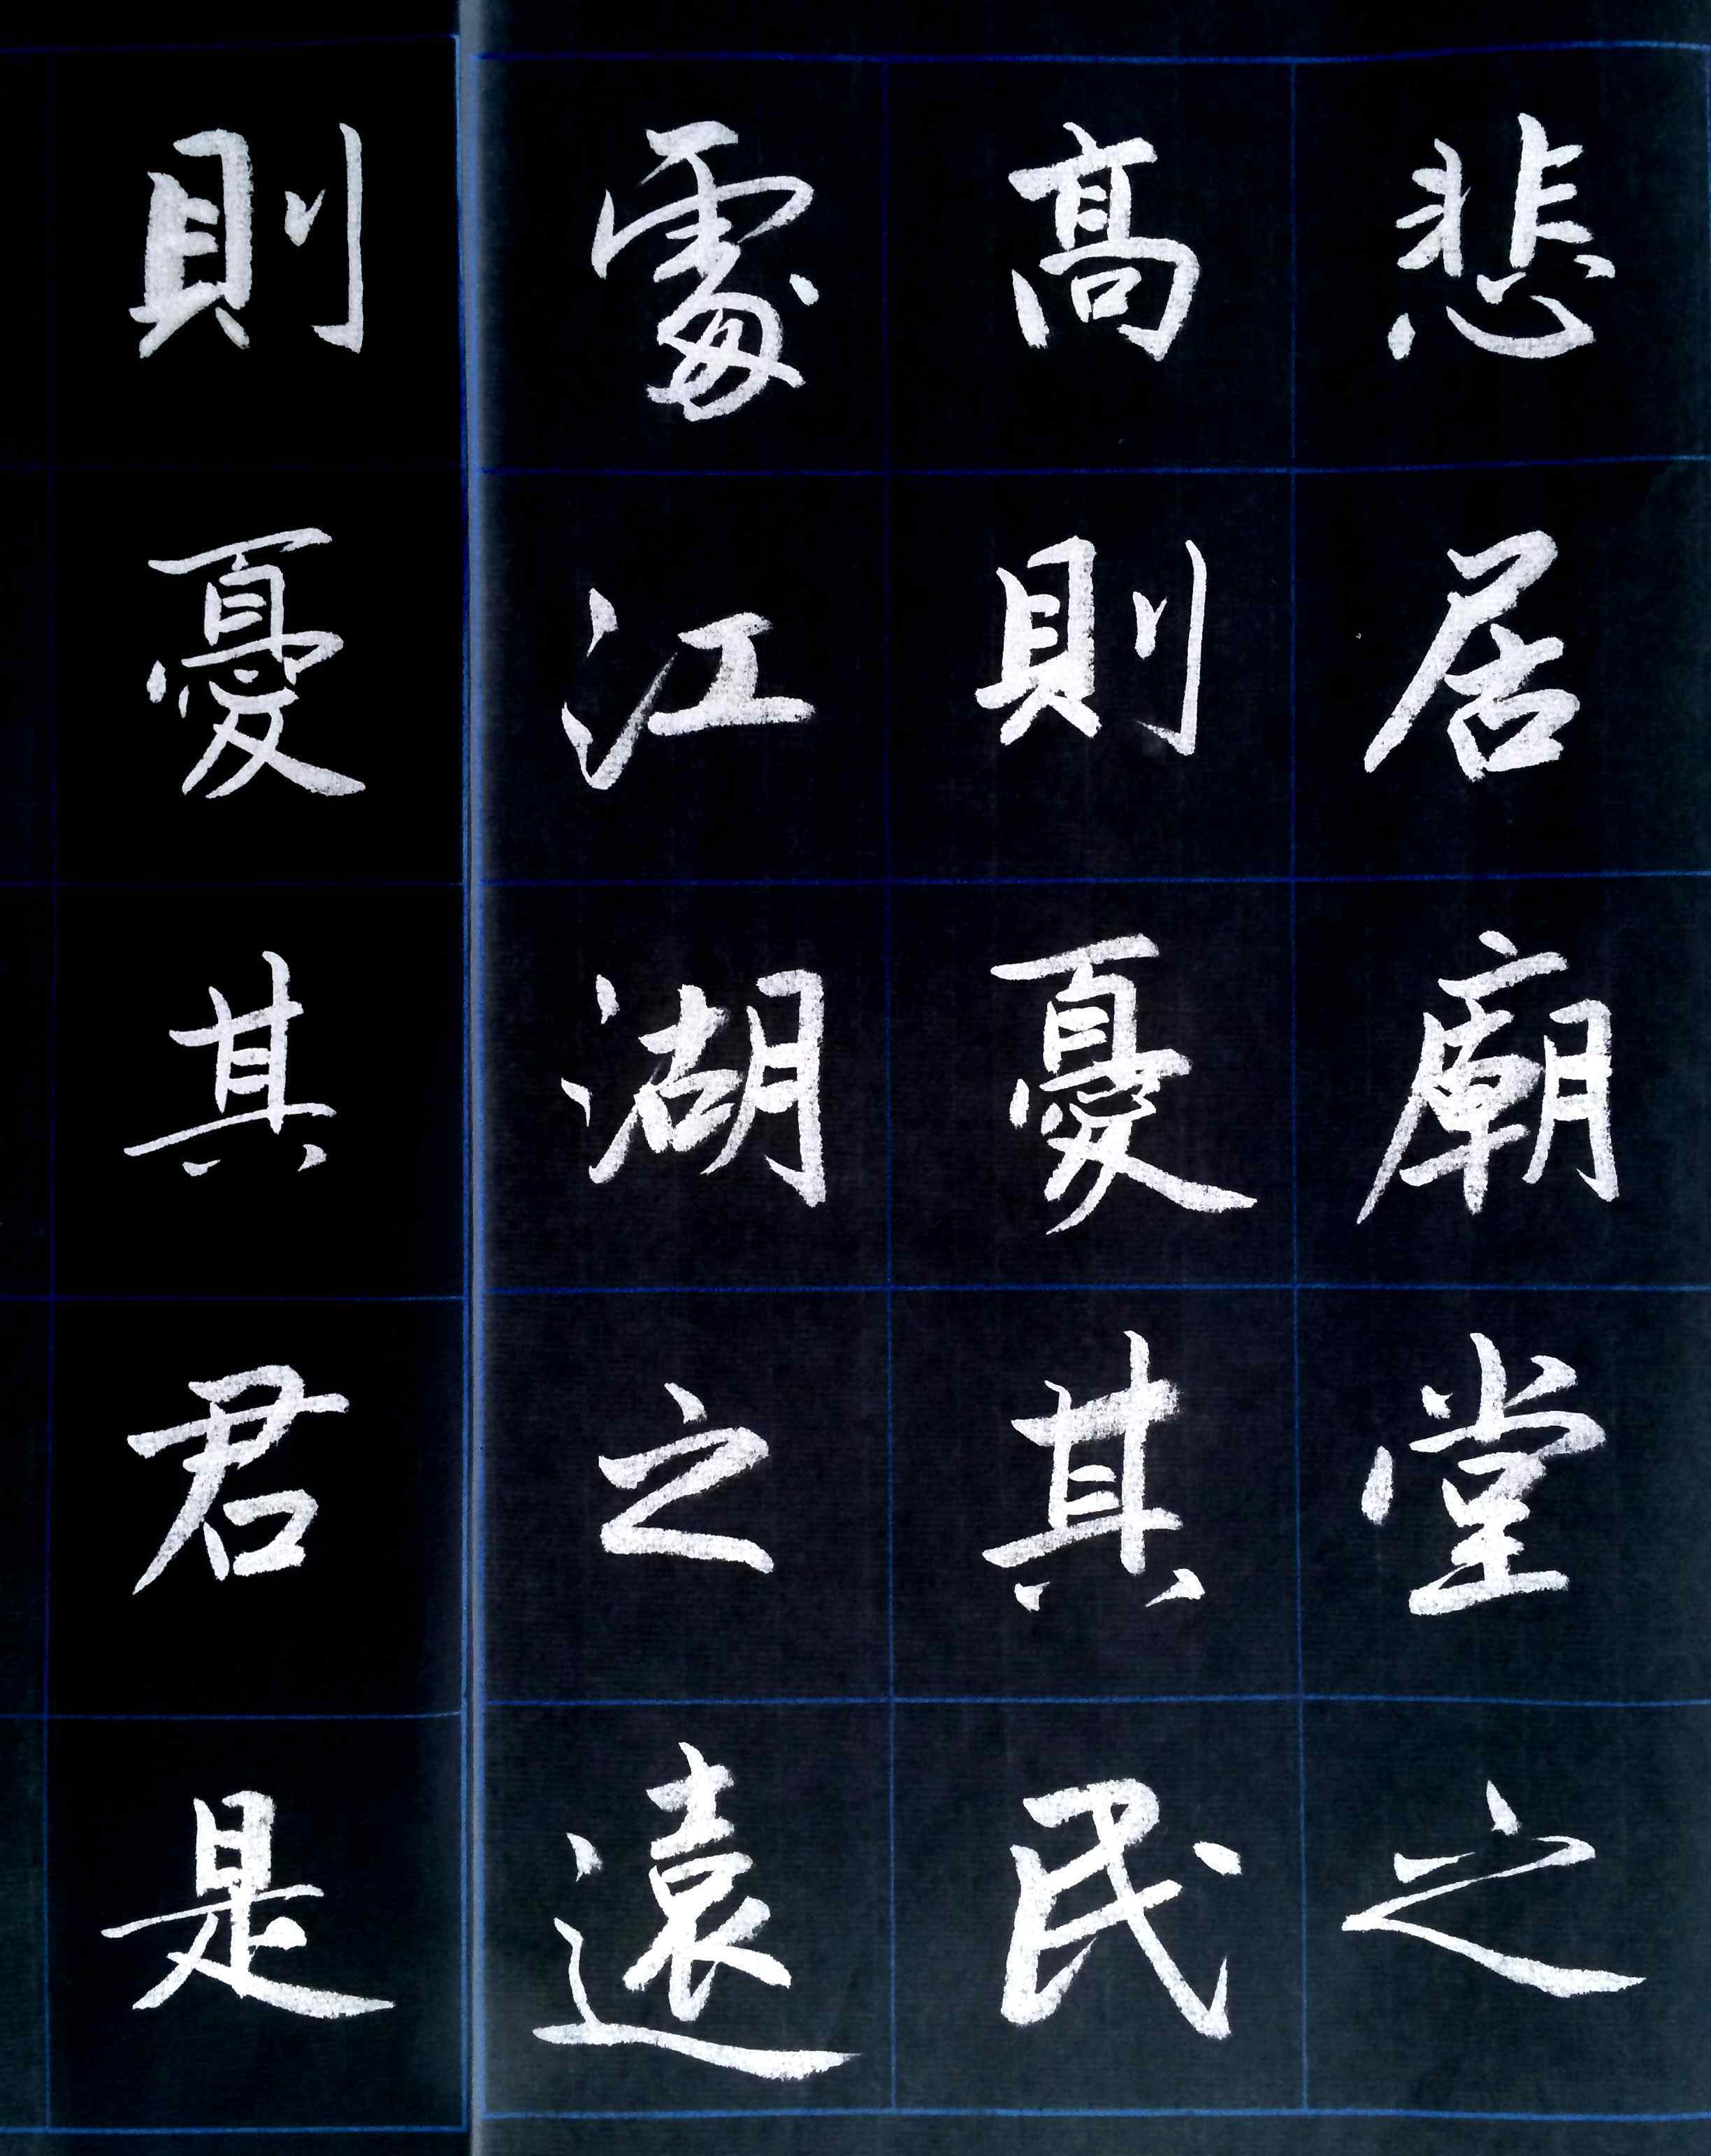 悲居廟堂之
高則憂其民
處江湖之遠
則憂其君是